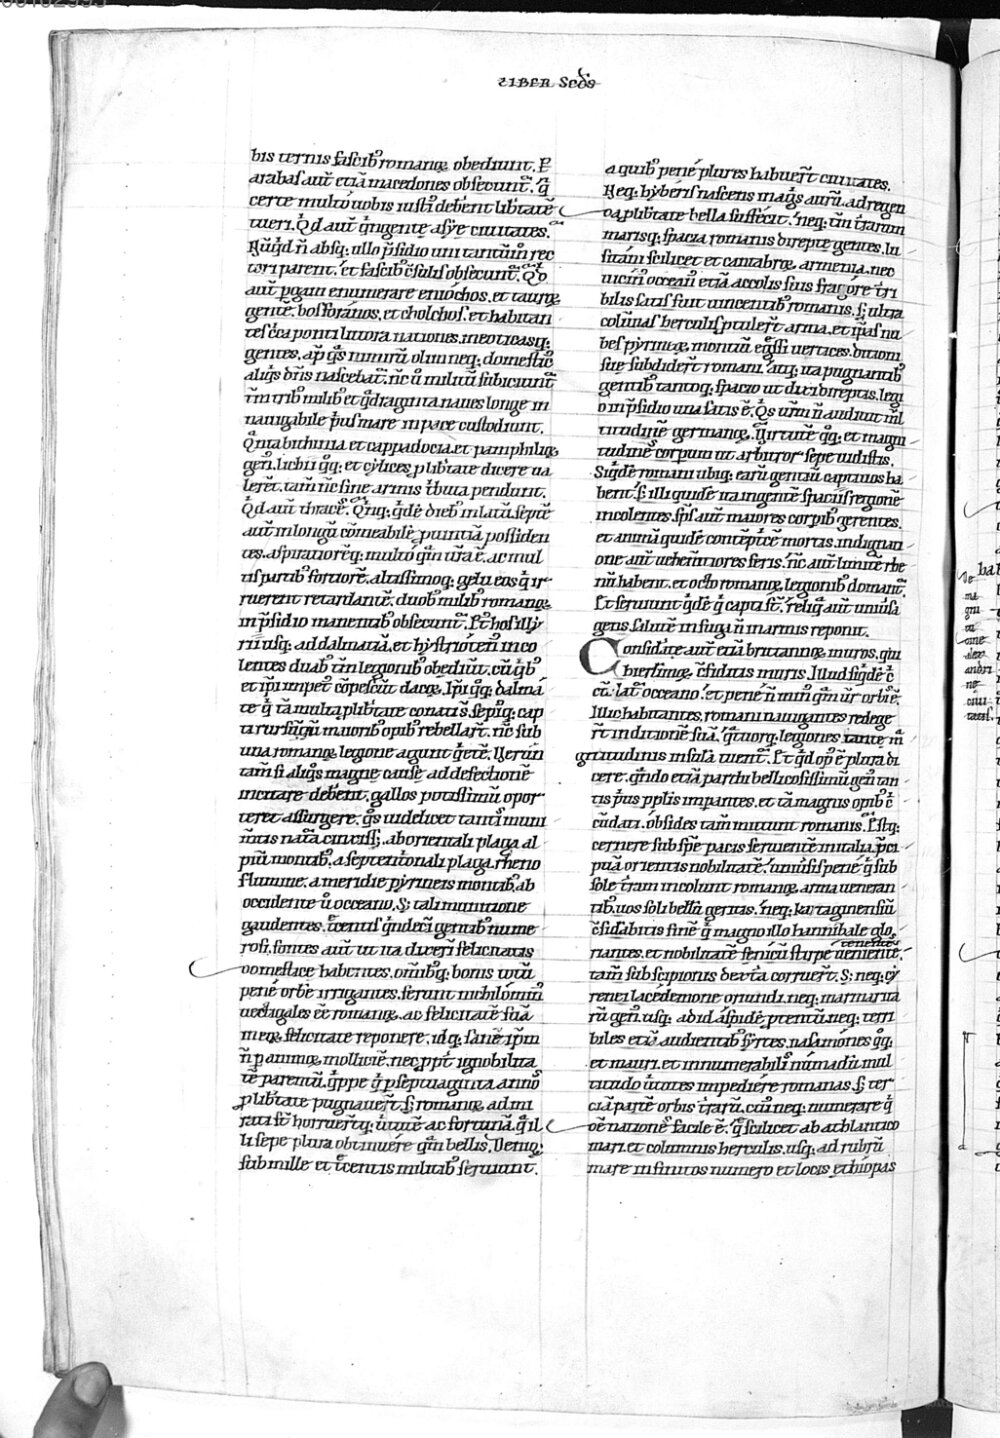 LIBER Scd̄s
bis ternis fascib; romanoꝝ obediunt. P
arabas aut̄ etiā macedones obsecunt̄. q̄
certe multo uobis iusti᷒ debent lib̄tatē
tueri. Qd aut̄ q̇ngente asye ciuitates.
Nūq̇d ñ absq; ullo p̄sidio uni tantūm rec
tori parent. et fascib; c̄sulis obsecunt̄. Qd
aut̄ pgam enumerare eniochos. et tauroꝝ
gentē. bosforanos. et cholchos. et habitan
tes c̄ca ponti litora nationes. meoticasq;
gentes. ap̄ q̇s nimirū olim neq; domestic᷒
aliq̇s dñs nascebat̄. nc̄ ū militū subiciunt̄
tm̄ trib; milib; et q̇draginta naues longe in
nauigabile ṗus mare in pace custodiunt.
Q̄nta bithinia et cappadocia. et pamphilioꝝ
gen᷒. licii q̇q; et cylices p lib̄tate dicere ua
lerēt. tam̄ nc̄ sine armis t̄buta pendunt.
Qd aut̄ thraces. Qnq; q̇dē dieb; in latū septē
aut̄ in longū cōmeabilē puintiā possiden
tes. aspiratiorēq; multo q̄m ur̄a ē. ac mul
tis partib; fortiorē. altissimoq; gelu eos q̇ ir
ruerent retardantē. duob; milib; romanoꝝ
in p̄sidio manentib; obsecunt. Et hos illy
rii usq; ad dalmatiā. et hystrio tēn᷒ inco
lentes duab; tm̄ legionib; obediūt. cū q̇b;
et ip̄i impet᷒ cōpescūt dacoꝝ. Ip̄i q̇q; dalma
te q̇ tā multa p lib̄tate conati s̄. sepiq; cap
ti rursūq; maiorib; opib; rebellar̄t. nc̄ sub
una romanoꝝ legione agunt q̇etē. Verūn
tam̄ si aliq̇s magne cause ad defectionē
incitare debent. gallos potissimū opor
teret assurgere. q̇s uidelicet tanti muni
mtis natā cinxisse. ab orientali plaga al
piū montib;. a septent̄onali plaga. rheno
flumine. a meridie pyrineis montib;. ab
occidente ū occeano. S; tali munitione
gaudentes. t̄centis q̇ndeci gentib; nume
rosi. fontes aut̄ ut ita dicer̄ felicitatis
domesticę habentes. om̄ibq; bonis totū
penē orbē irrigantes. ferunt nichilomin᷒
uectigales eē romanoꝝ. ac felicitatē suā
in eoꝝ felicitate reponere. idq; sanē ip̄m
ñ p animoꝝ mollitiē. nec ppt̄ ignobilita
tē parentū. q̇ppe q̇ p septuaginta annos
p lib̄tate pugnauer̄t. S; romanoꝝ ad mi
rati st̄ horruertq; uirtutē ac fortunā. q̇ il
li sepe plura obtinuere q̄m bellis. Deniq;
sub mille et t̄centis militib; seruiunt.
a quib; penē plures habuer̄t ciuitates.
Neq; hyberis nascens in agris aurū. ad regen
da p lib̄tate bella suffecit. neq; tm̄ t̄rarum
marisq; spacia romanis dirempte gentes. lu
sitani scilicet et cantabroꝝ armenia. nec
uicin᷒ oceanus etiā accolis suis fragore tri
bilis satis fuit uincentib; romanis. S; ultra
colūnas herculis p tuler̄t arma. et ip̄as nu
bes pyrineoꝝ montiū eḡssi uertices. ditioni
sue subdider̄t romani. atq; ita pugnantib;
gentib; tantoq; spacio ut dixi direptis. legi
o in p̄sidio una satis ē. Q̇s ur̄m ñ audiuit ml
titudinē germanoꝝ. Virtutē q̇q; et magni
tudinē corpum ut arbitror sepe uidistis.
Siq̇dē romani ubiq; earū gentiū captiuos ha
bent. S; illi quidē tā ingentē spaciis regionē
incolentes. sp̄s aut̄ maiores corpib; gerentes.
et animū quidē contēpt̄cē mortis. indignati
one aut̄ uehem̄tiores feris. nc̄ aut̄ limitē rhe
nū habent. et octo romanoꝝ legionib; domant̄.
Et seruiunt q̇dē q̇ capti st̄. reliq̄ aut̄ uniūsa
gens salutē in fuga ñ in armis reponit.
Considrate aut̄ etiā britannoꝝ muros. qui
hierosolimoꝝ c̄fiditis muris. Illud siq̇dē c̄
cū lat᷒ occeano. et penē ñ min᷒ q̄m ur̄ orbis ē.
Illic habitantes. romani nauigantes redege
r̄t in ditionē suā. q̇tuorq; legiones tante m̄
gnitudinis insulā tuent̄. Et q̇d op᷒ ē plura di
cere. q̇ndo etiā parthi bellicosissimū gen᷒. tan
tis ṗus pplis impantes. et tā magnis opib; c̄
cūdati. obsides tam̄ mittunt romanis. Estq;
cernere sub spē pacis seruientē in italia. p̄ci
puā orientis nobilitatē. uniūsis penē q̇ sub
sole t̄ram incolunt romanoꝝ arma ueneran
tib;. uos soli bellū geritis. neq; kartaginensiū
c̄sidabitis finē. q̇ magno illo hannibale glo
riantes. et nobilitatē fenicū stirpe uenientē. tenentes
tam̄ sub scipionis dext̄a corruer̄t. S; neq; cy
renei lacedemone oriundi. neq; marmarita
rū gen᷒. usq; ad id aspidē ptentū. neq; terri
biles etiā audientib; syrtes. nasamones q̇q;
et mauri. et innumerabilis numadū mul
titudo uirtutes impediere romanas. S; ter
ciā partē orbis t̄rarū. cui᷒ neq; numerare q̇
dē nationes facile ē. q̄ scilicet ab athlantico
mari. et columnis herculis. usq; ad rubrū
mare infinitos numero et locis ethiopas